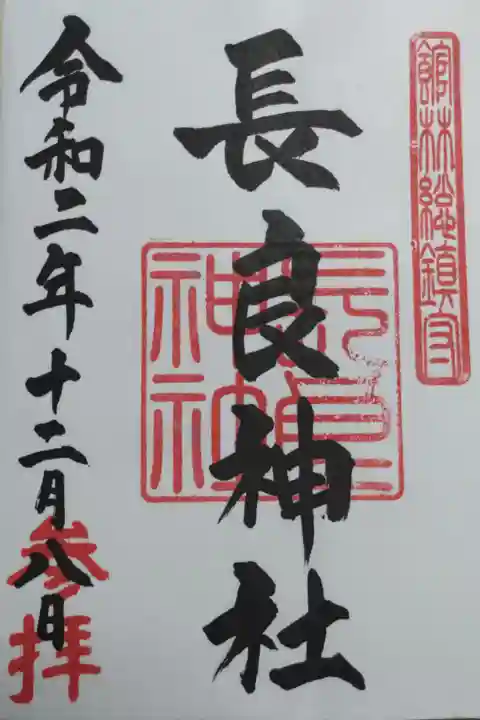 館林総鎮守
長良神社
長良
神社
令和二年十二月八日
参拝